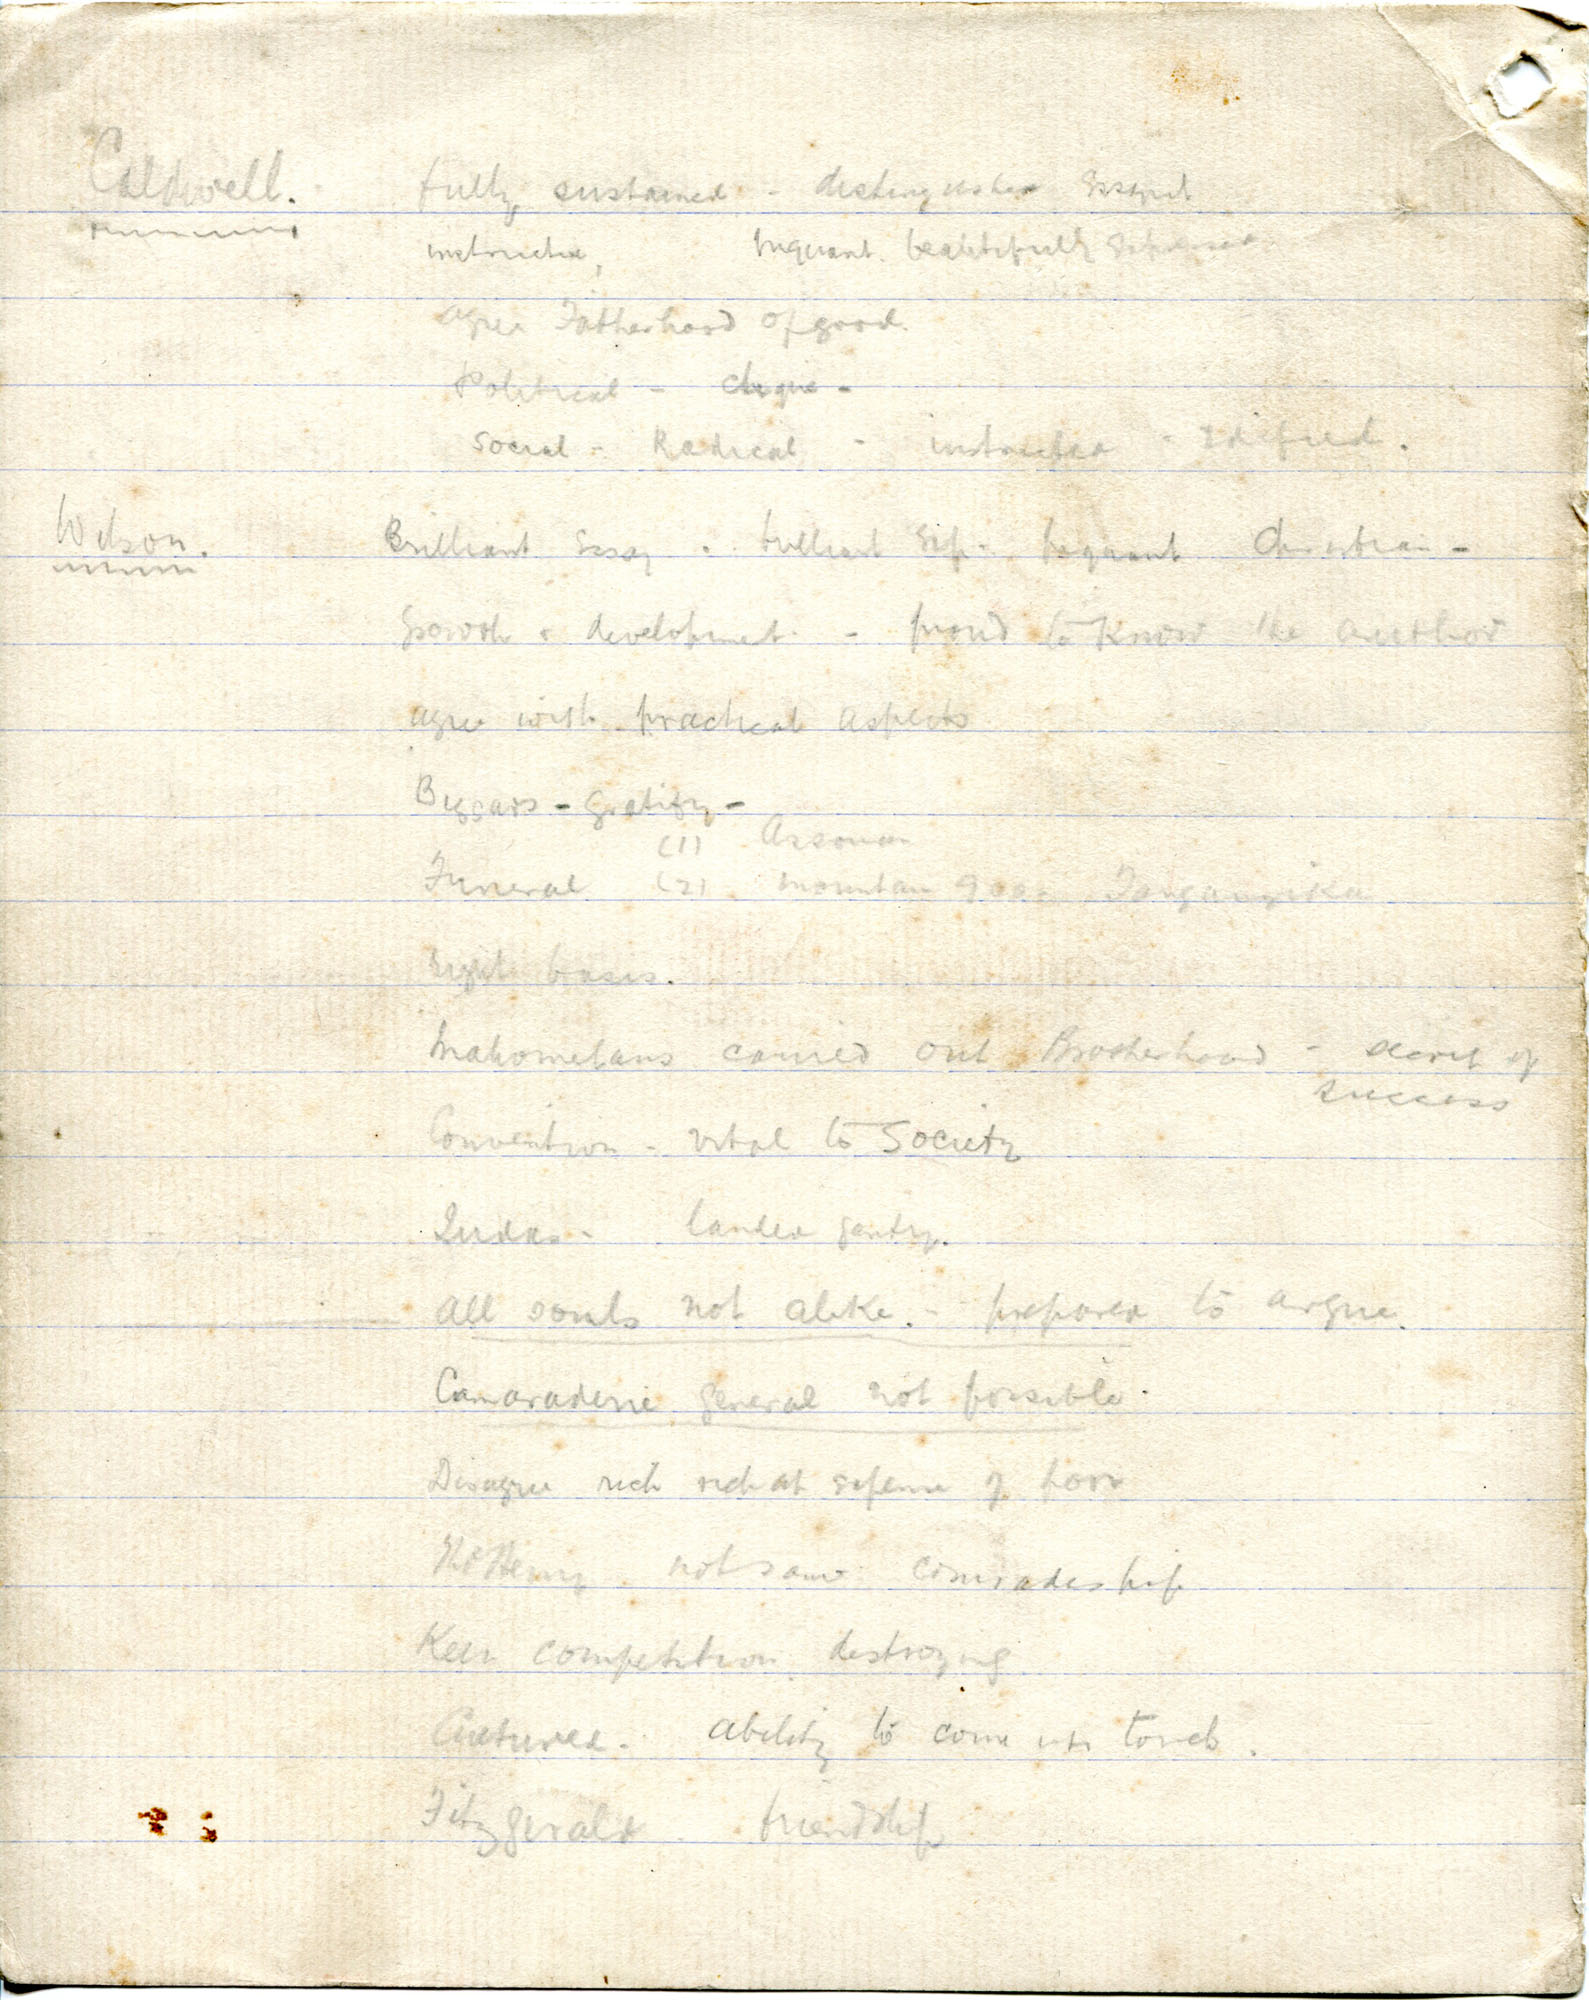 Caldwell. fully sustained - distinguished Essayist
instructive, piquant. beautifully Expressed
agree Fatherhood of good.
Political - clique -
Social - Radical - instructed - Edified.
Wilson. Brilliant Essay. brilliant Exp. piquant Christian -
Growth & development - proud to know the author
agree with practical aspects
Beggars - gratify -
(1) Assouan
Funeral (2) mountain 9000 Tanganyika
right basis.
Mahometans carried out Brotherhood - secret of
success
Convention - vital to Society
Judas - landed gentry.
all souls not alike. - prepared to argue.
Camaraderie general not possible.
Disagree rich rich at expense of poor
not same comradeship
Keen competition destroying
Cultured. ability to come into touch.
Fitzgerald. friendship